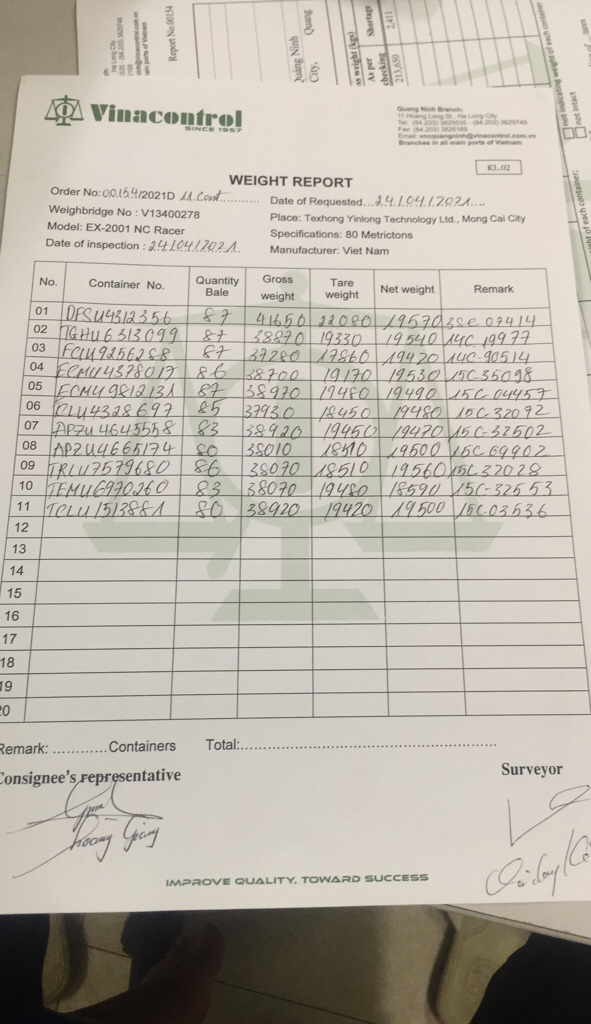 Report No.00154
Quảng Ninh
City,
Quang
ss weight (kgs)
As per
checking
213,650
Shortage
2,411
not indicating weight of each container
not intact
ht of each container;
Vinacontrol
SINCE 1957
Quang Ninh Branch:
11 Hoang Long St., Ha Long City
Branches in all main ports of Vietnam
KL.02
WEIGHT REPORT
Order No: 00154/2021D 11 Cont
Date of Requested...24/04/2021....
Weighbridge No : V13400278
Place: Texhong Yinlong Technology Ltd., Mong Cai City
Model: EX-2001 NC Racer
Specifications: 80 Metrictons
Date of inspection : 24/04/2021
Manufacturer: Viet Nam
No. Container No. Quantity Bale Gross weight Tare weight Net weight Remark
01 DFSU4312356 87 41650 22080 19570 38C 07414
02 TGHU6313099 87 38870 19330 19540 14C 19977
03 FCIU9256288 87 37280 17860 19420 14C-90514
04 ECMU4378017 86 38700 19170 19530 15C35098
05 ECMU9812131 87 38970 19480 19490 15C-04457
06 85 37930 18450 19480 15C-32092
07 APZU4645558 83 38920 19450 19470 15C-32502
08 APZU4665174 80 38010 18510 19500 15C 69902
09 TRLU7579680 86 38070 18510 19560 15C 32028
10 TEMU6970260 83 38070 19480 18590 15C-32553
11 TCLU1513881 80 38920 19420 19500 15C-03536
12
13
14
15
16
17
18
19
20
Remark: ............Containers Total:..........................................................
Consignee's representative
Surveyor
Hoang Giang
IMPROVE QUALITY, TOWARD SUCCESS